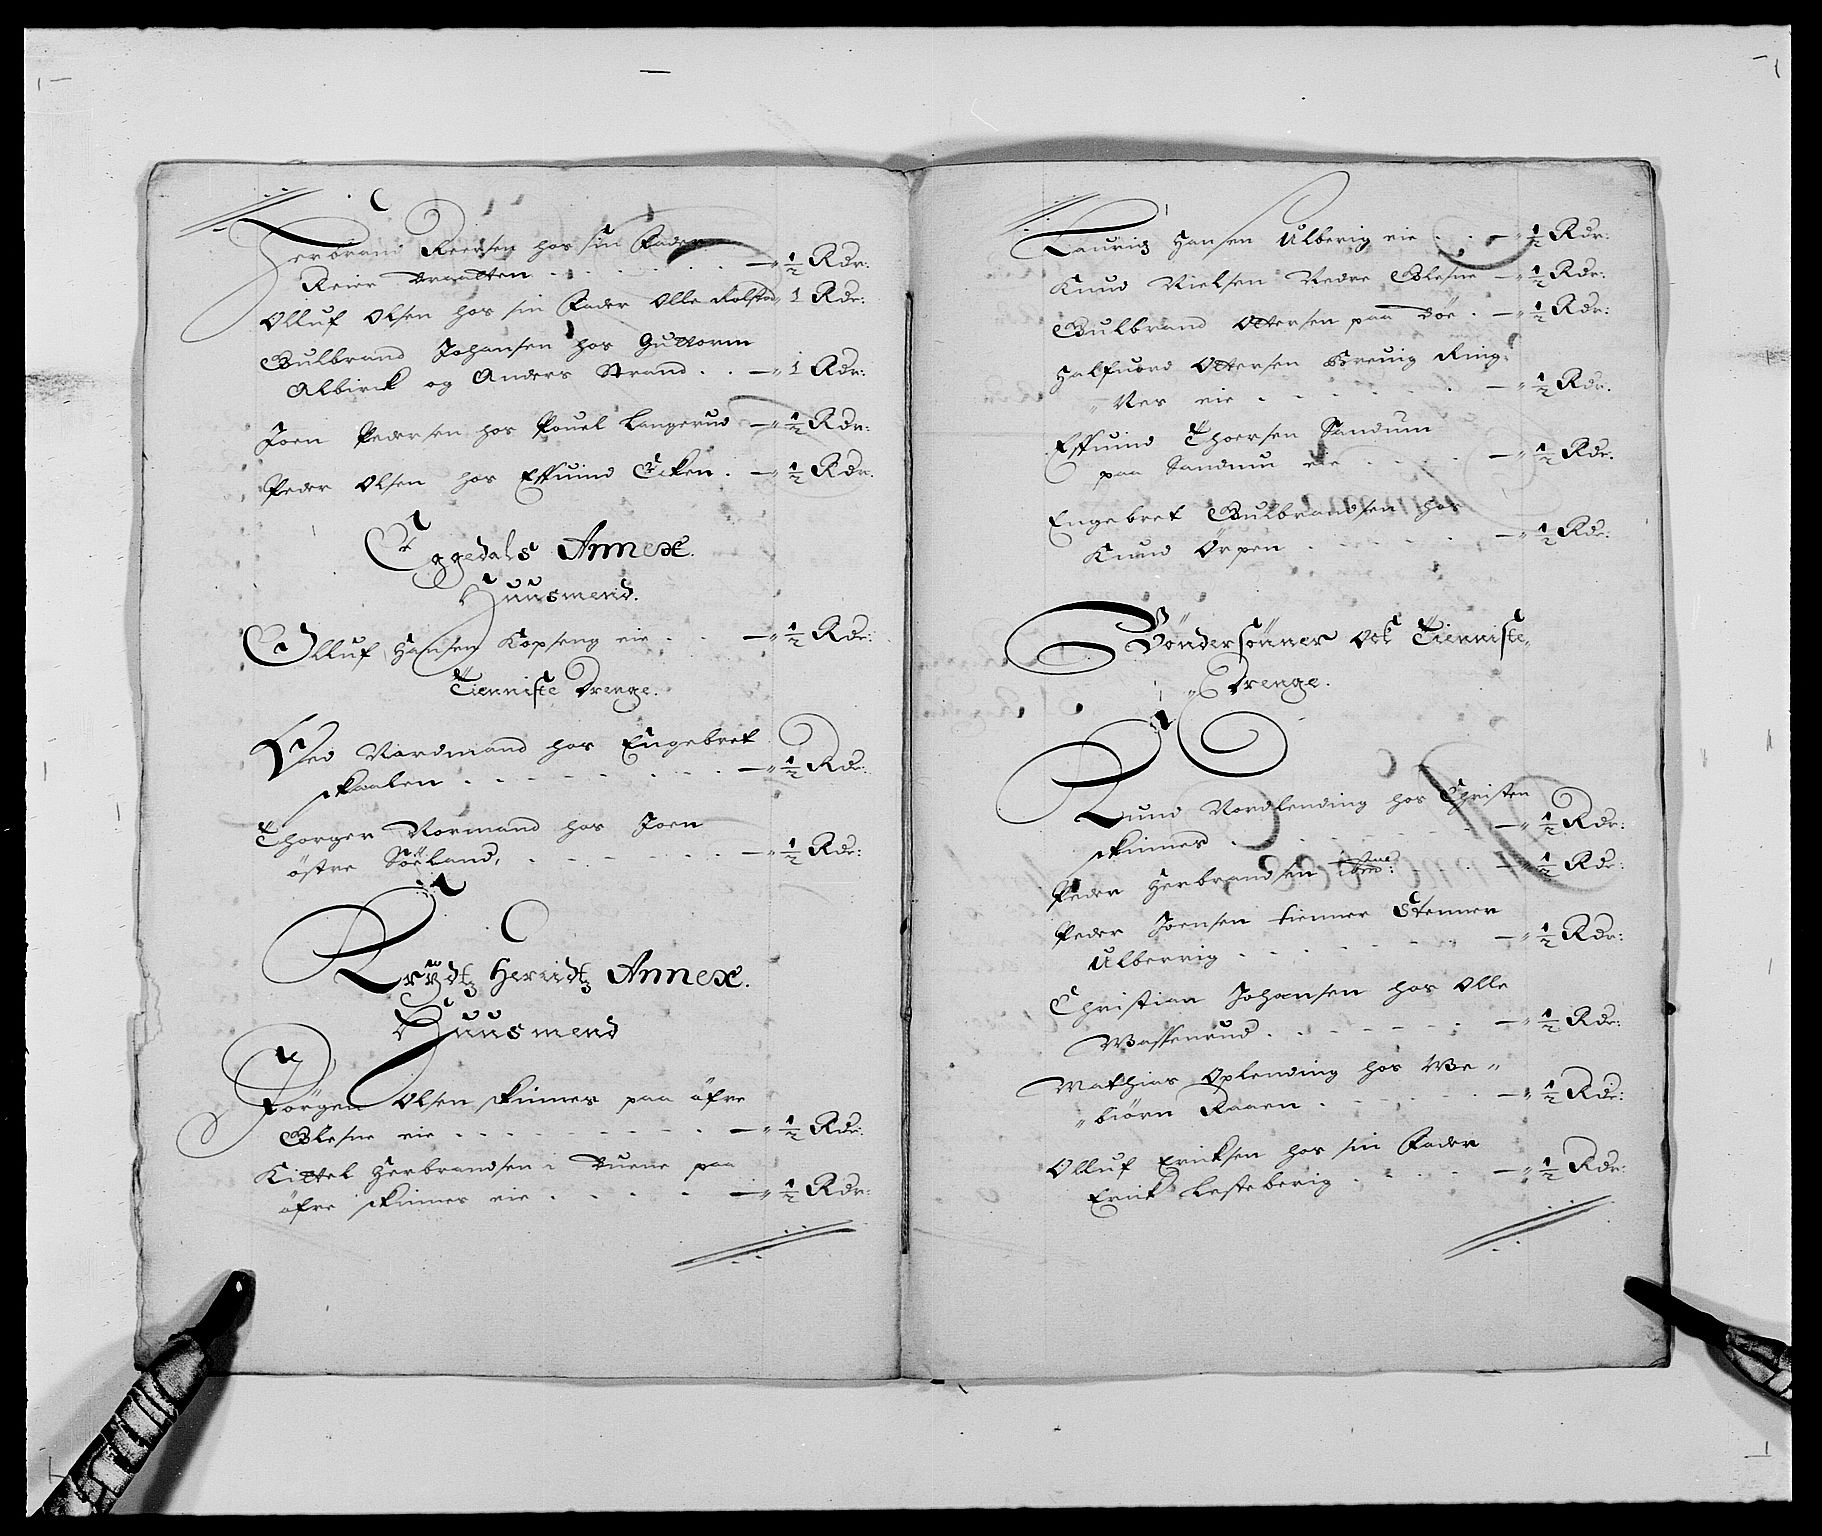 Herbrand Reersen hos sin Fader
Reier Braatten . . . . . . — „ ½ Rdr:
Olluf Olsen hos sin Fader Olle Rolstad „ 1 Rdr:
Gulbrand Johansen hos Guttorm
Albirck og Anders Strand . . — „ 1 Rdr:
Joen Pedersen hos Pouel Langerud — „ ½ Rdr:
Peder Olsen hos Effuind Ecken . — „ ½ Rdr.
Eggedals Annex.
Huusmend.
Olluf Hansen Kopseng eie . . . — „ ½ Rdr:
Tienniste Drenge.
Ved Nordmand hos Engebret
Skaalen . . . . . . . . — „ ½ Rdr:
Thorger Normand hos Joen
östre Söeland, . . . . . . — „ ½ Rdr:
Krydtz Heridtz Annex.
Huusmend
Jörgen Olsen Skinnes paa öfre
Glesne eie . . . . . . . . — „ ½ Rdr:
Kittel Herbrandsen i Duene paa
öfre Skinnes eie . . . . . — „ ½ Rdr:
Lauritz Hansen Ulberig eie . . — „ ½ Rdr:
Knud Nielsen Nedre Glesne — „ ½ Rdr:
Gulbrand Ottersen paa Döe . — „ ½ Rdr:
Halfuord Ottersen Greuig Ring-
„ Nes eie . . . . . . — „ ½ Rdr.
Effuind Thoersen Sandum
paa Sandum eie . . . . — „ ½ Rdr.
Engebret Gulbrandsen hos
Knud Örpen . . . . . . — „ ½ Rdr:
Böndersönner och Tienniste„
„ Drenge.
Knud Nordlending hos Christen
Skinnes . . . . . . . — „ ½ Rdr:
Peder Herbrandsen ibm: . . — „ ½ Rdr:
Peder Joensen tienner Stenner
Ulberrig . . . . . . . — „ ½ Rdr:
Christian Johansen hos Olle
Wassenrud . . . . . . . — „ ½ Rdr:
Mathias Oplending hos We„
„biörn Raaen . . . . . . — „ ½ Rdr:
Olluf Ericksen hos sin Fader
Erick Lesteberig . . . . — „ ½ Rdr: